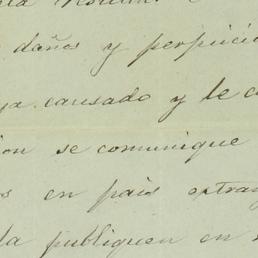 daños y perjuicio
ya causado y le c
ion se comunique
os en pais extran
la publiquen en